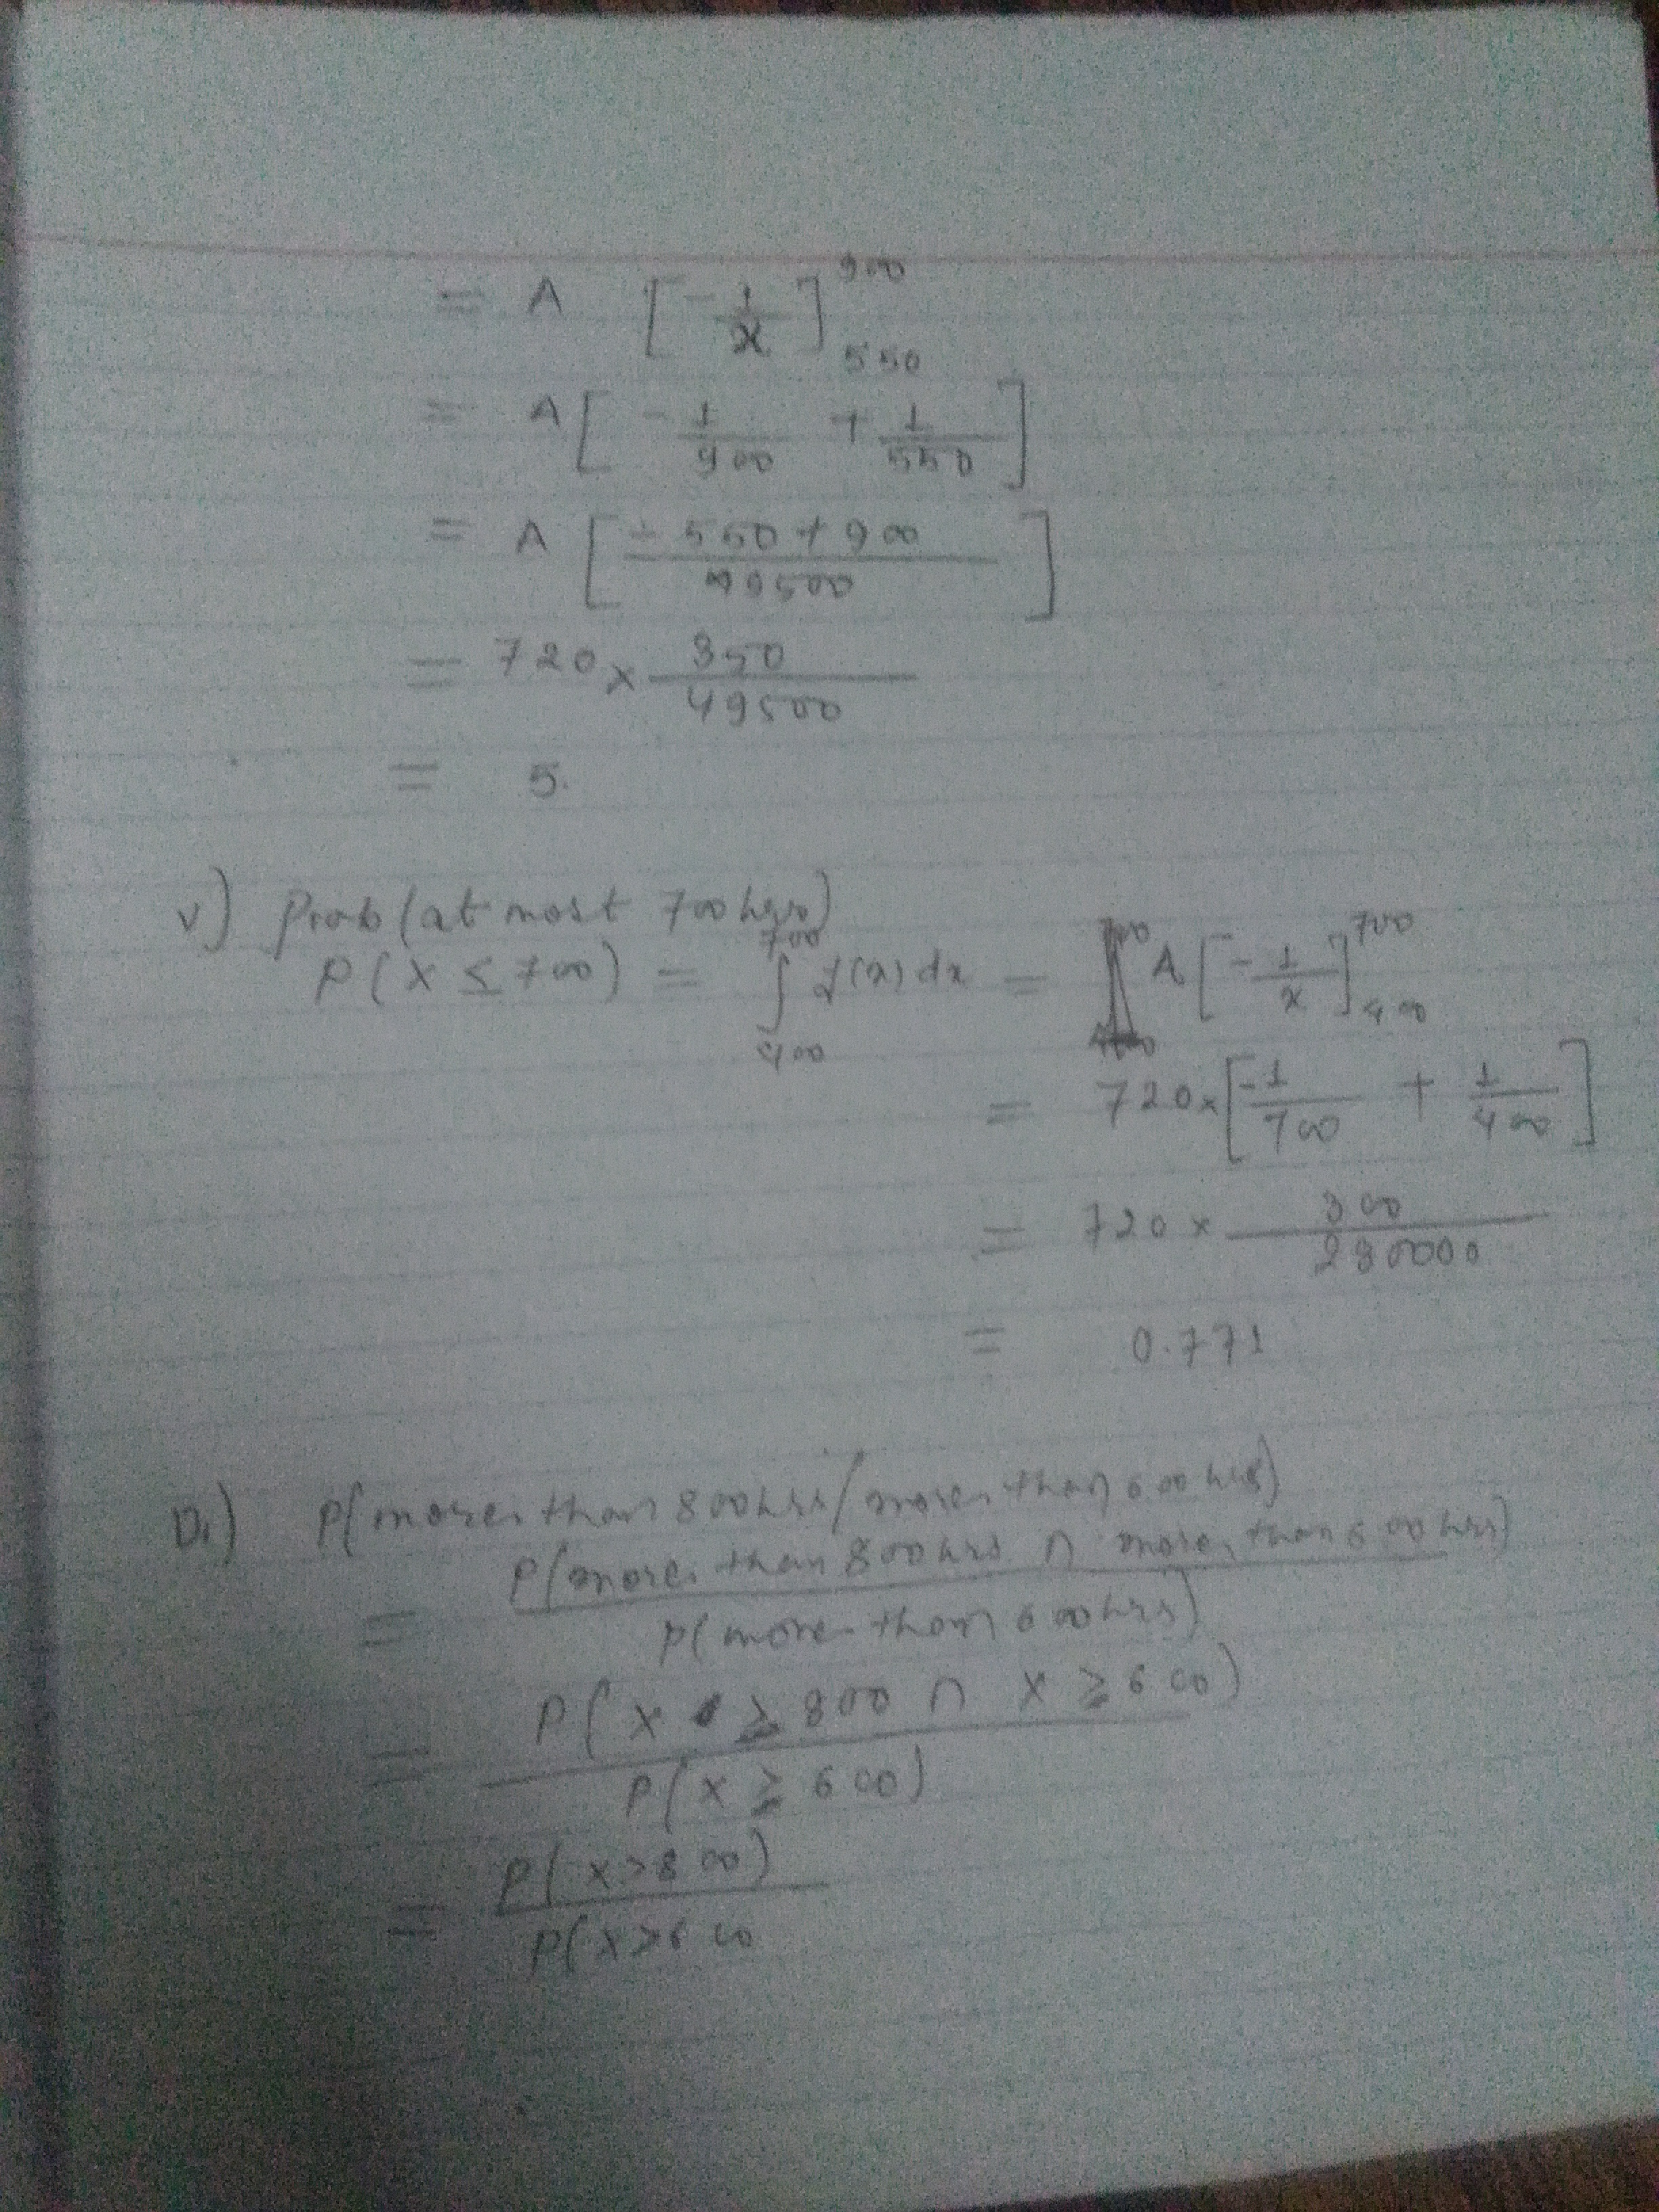 = A [ - 1/x ]_550^900
= A [ - 1/900 + 1/550 ]
= A [ (- 550 + 900) / 49500 ]
= 720 × 350/49500
= 5.
v) Prob (at most 700 hrs)
P(X ≤ 700) = ∫_400^700 f(x) dx = A [ - 1/x ]_400^700
= 720 × [ -1/700 + 1/400 ]
= 720 × 300/280000
= 0.771
vi) P(more than 800 hrs / more than 600 hrs)
= P(more than 800 hrs ∩ more than 600 hrs) / P(more than 600 hrs)
= P(X ≥ 800 ∩ X ≥ 600) / P(X ≥ 600)
= P(X > 800) / P(X > 600